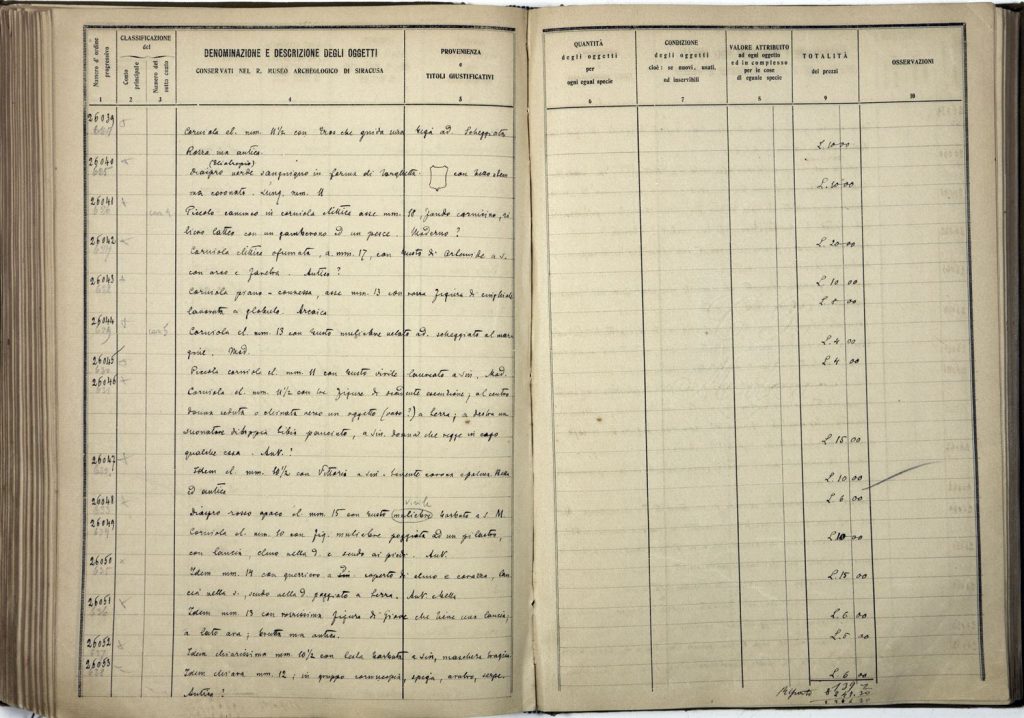 Numero d'ordine progressivo
CLASSIFICAZIONE
del
Conto principale
Numero del sotto conto
DENOMINAZIONE E DESCRIZIONE DEGLI OGGETTI
CONSERVATI NEL R. MUSEO ARCHEOLOGICO DI SIRACUSA
PROVENIENZA
e
TITOLI GIUSTIFICATIVI
QUANTITÀ
degli oggetti
per
ogni egual specie
CONDIZIONE
degli oggetti
cioè: se nuovi, usati,
od inservibili
VALORE ATTRIBUITO
ad ogni oggetto
ed in complesso
per le cose
di eguale specie
TOTALITÀ
dei prezzi
OSSERVAZIONI
1 2 3 4 5 6 7 8 9 10
26039
Corniola el. mm. 11 1/2 con Eros che guida una biga ad. Scheggiata
Rozza ma antica. L. 10 00
26040
(Eliotropio)
Diaspro verde sanguigno in forma di targhetta con stem
ma coronato. Lung. mm. 11 L. 10 00
26041
Piccolo cammeo in corniola ellittico asse mm. 18, fondo carnicino, ri
lievo latteo con un gamberone ed un pesce. Moderno? L. 20 00
26042
Corniola ellittica sfumata, a mm. 17, con busto di Artemide a s.
con arco e faretra. Antica? L. 10 00
26043
Corniola piano-convessa, asse mm. 13 con rozza figura di cinghiale L. 8 00
lavorata a globuli. Arcaica
26044
Corniola el. mm. 13 con busto muliebre velato ad. scheggiato al mar L. 4 00
gine. Mod.
26045 L. 4 00
Piccola corniola el. mm. 11 con busto virile laureato a sin. Mod.
26046
Corniola el. mm. 11 1/2 con tre figure di scadente esecuzione; al centro
donna seduta o chinata verso un oggetto (vaso?) a terra; a destra un
suonatore di doppia tibia panciuto, a sin. donna che regge in capo
qualche cosa. Ant.? L. 15 00
26047
Idem el. mm. 10 1/2 con Vittoria a sin. tenente corona e palma. Rozza L. 10 00
ed antica
26048 L. 6 00
virile
Diaspro rosso opaco el. mm. 15 con busto muliebre barbato a s. M
26049
Corniola el. mm. 10 con fig. muliebre poggiata ad un pilastro, L. 10 00
con lancia, elmo nella d. e scudo ai piedi. Ant.
26050
Idem mm. 14 con guerriero a sin. coperto di elmo e corazza, lan L. 15 00
cia nella s., scudo nella d. poggiato a terra. Ant. bella
26051
Idem mm. 13 con rozzissima figura di Giove che tiene una lancia; L. 6 00
a lato ara; brutta ma antica. L. 5 00
26052
Idem chiarissima mm. 10 1/2 con testa barbata a sin, maschera tragica
26053
Idem chiara mm. 12; in gruppo cornucopia, spiga, aratro, serpe. L. 6 00
Antica?
Riporto